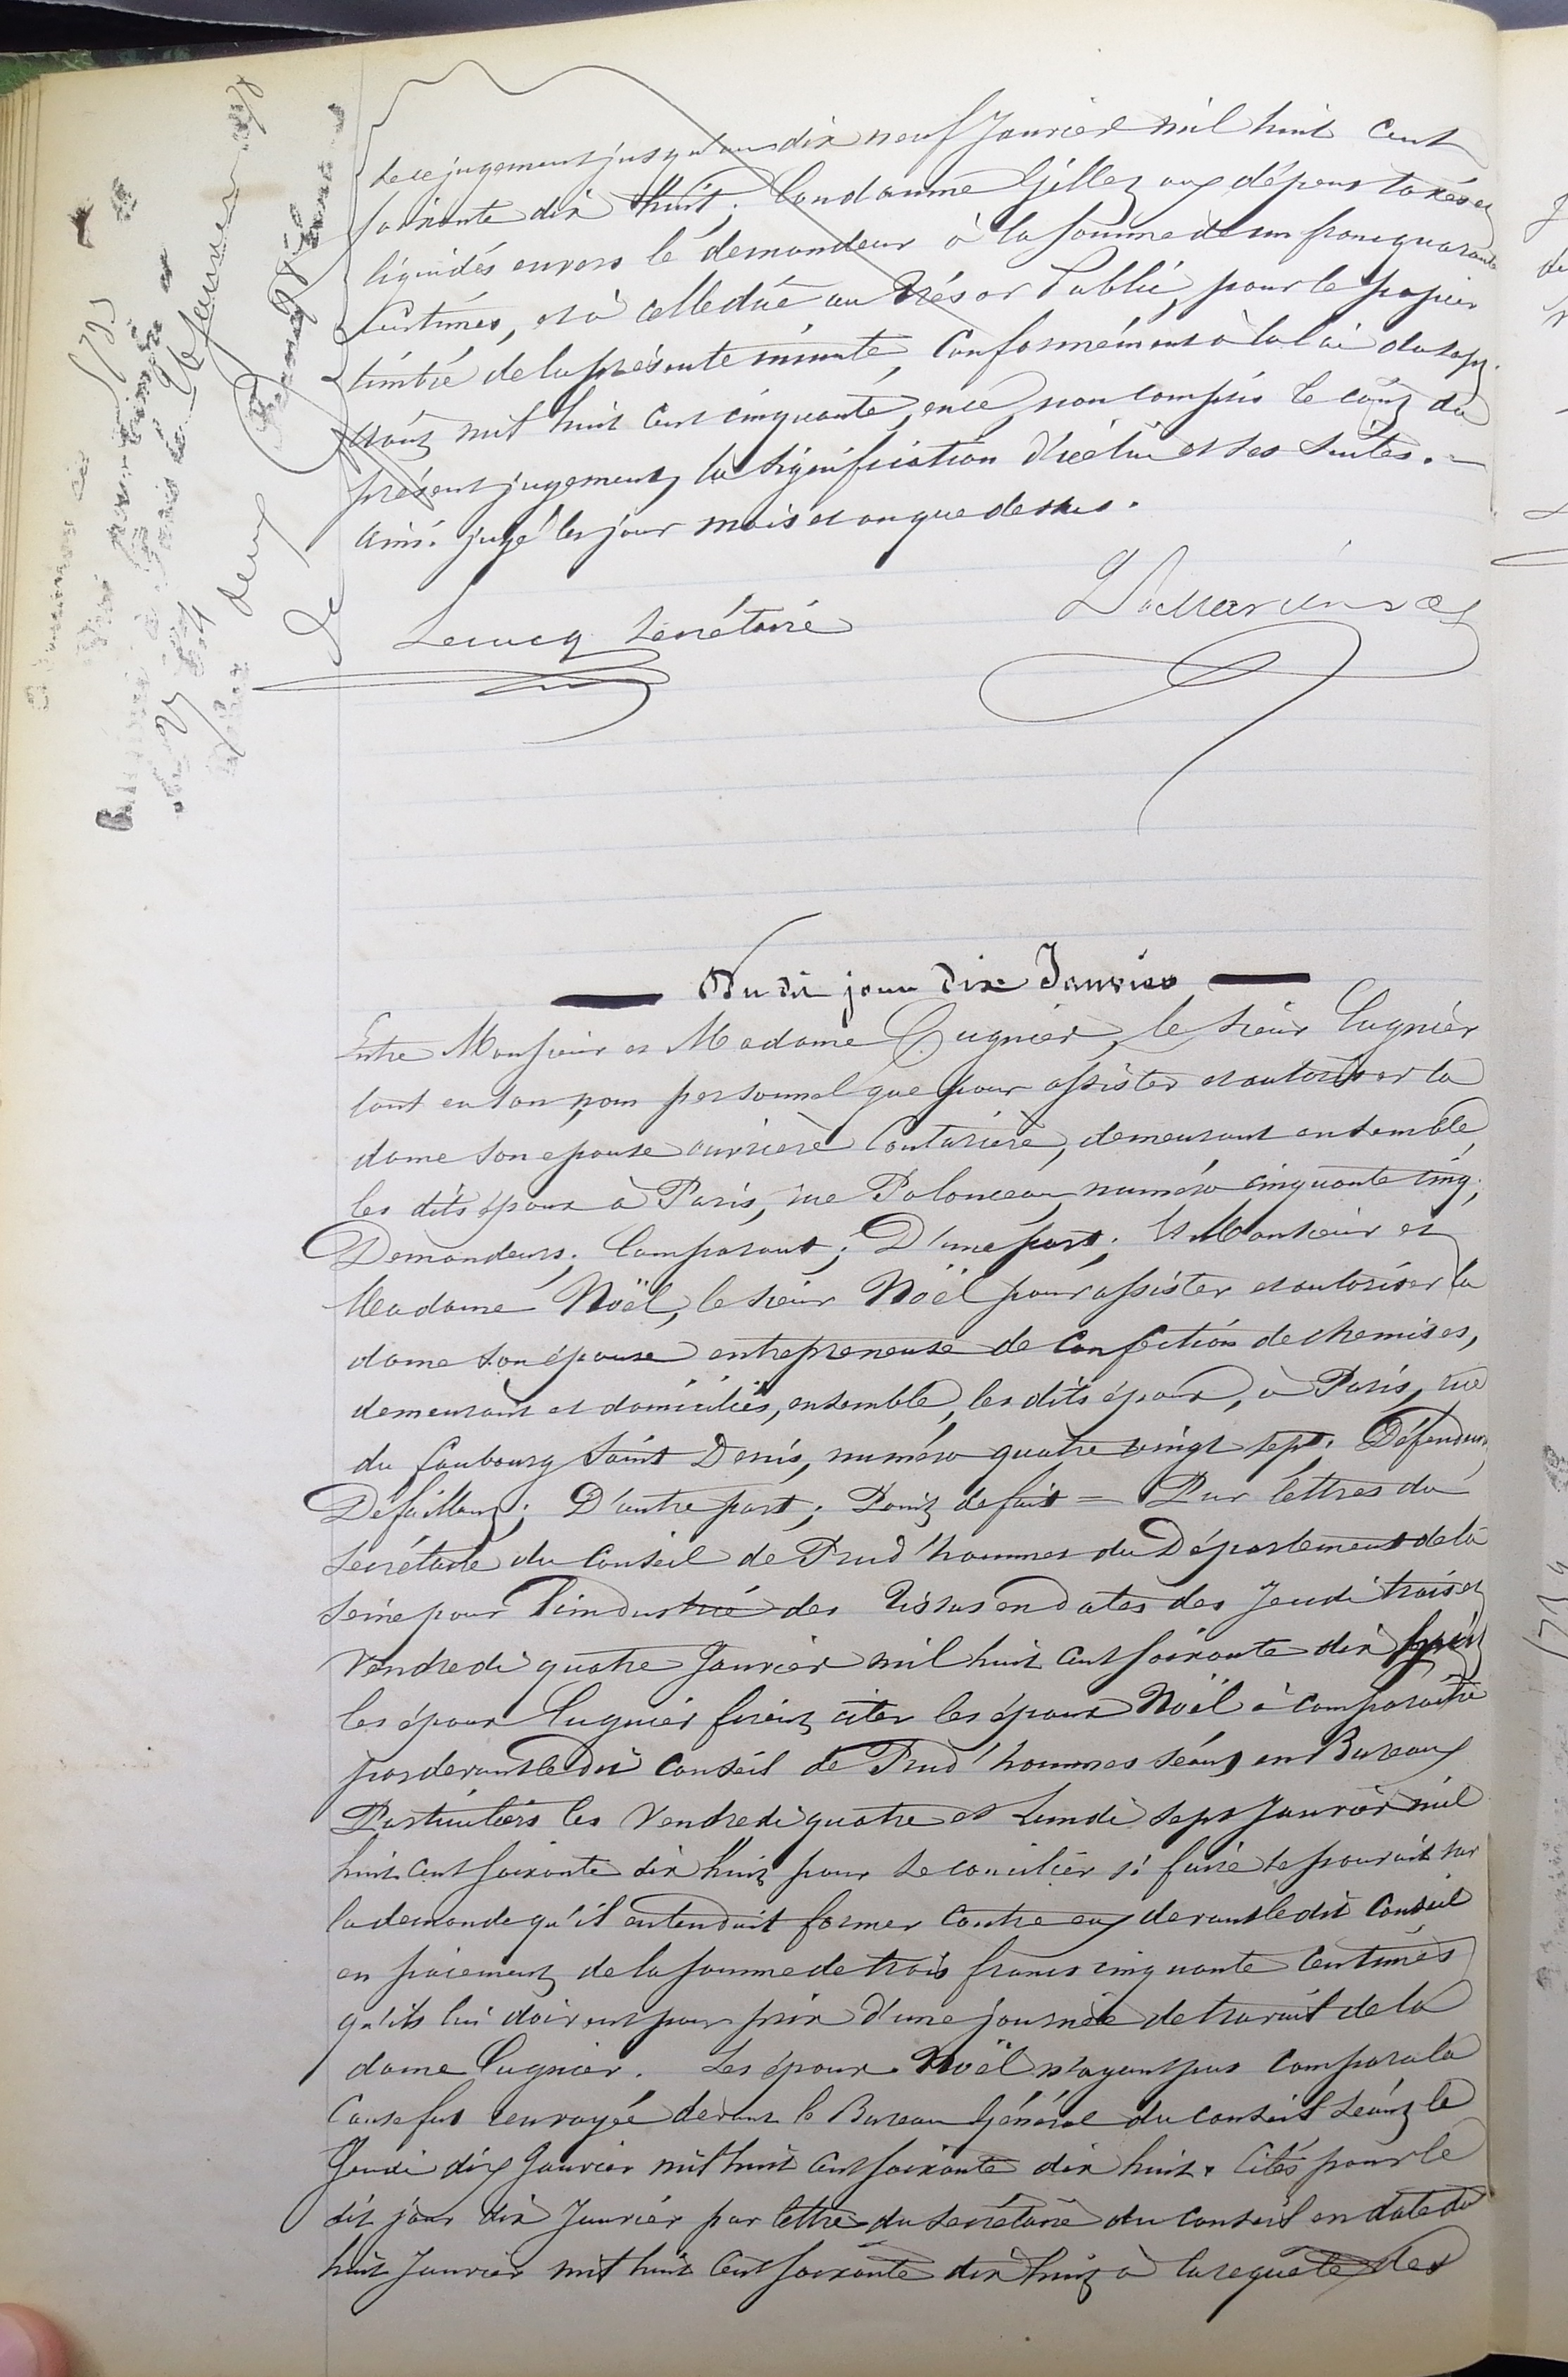 de ce jugement jusqu'au dix neuf Janvier mil huit cent
soixante dix huit; Condamne Gillez aux dépens taxés et
liquidés envers le demandeur à la somme de un franc quarante
centimes, et à celle due au Trésor Public, pour le papier
timbré de la présente minute, conformément à la loi du sept
août mil huit cent cinquante, en ce, non compris le coût du
présent jugement, la signification d'icelui et ses suites.
ainsi jugé les jour mois et an que dessus.
Lecucq Secrétaire
Du dit jour dix Janvier
Entre Monsieur et Madame Cugnier, le sieur Cugnier
tant en son nom personnel que pour assister et autoriser la
dame son epouse ouvrière Couturière, demeurant ensemble,
les dits époux à Paris, rue Polonceau, numéro cinquante cinq;
Demandeurs; Comparant; D'une part; Et Monsieur et
Madame Noël, le sieur Noël pour assister et autoriser la
dame son épouse entrepreneuse de Confection de chemises,
demeurant et domiciliés, ensemble, les dits époux, à Paris, rue
du faubourg Saint Denis, numéro quatre vingt sept. Défendeurs
Défaillant; D'autre part; Point de fait = Par lettres du
secrétaire du Conseil de Prud'hommes du Département de la
Seine pour l'industrie des Tissus en dates des Jeudi trois et
Vendredi quatre Janvier mil huit cent soixante dix huit
les époux Cugnier firent citer les époux Noël à comparaître
par devant le dit Conseil de Prud'hommes séant en Bureaux
Particuliers les Vendredi quatre et Lundi sept Janvier mil
huit cent soixante dix huit pour se concilier si faire se pouvait sur
la demande qu'il entendait former contre eux devant le dit Conseil
en paiement de la somme de trois francs cinquante centimes
qu'ils lui doivent pour prix d'une journée de travail de la
dame Cugnier. Les époux Noël n'ayant pas comparu la
Cause fut renvoyée devant le Bureau Général du conseil séant le
Jeudi dix Janvier mil huit cent soixante dix huit. Cités pour le
dit jour dix Janvier par lettre du secrétaire du Conseil en date du
huit Janvier mil huit cent soixante dix huit à la requête des